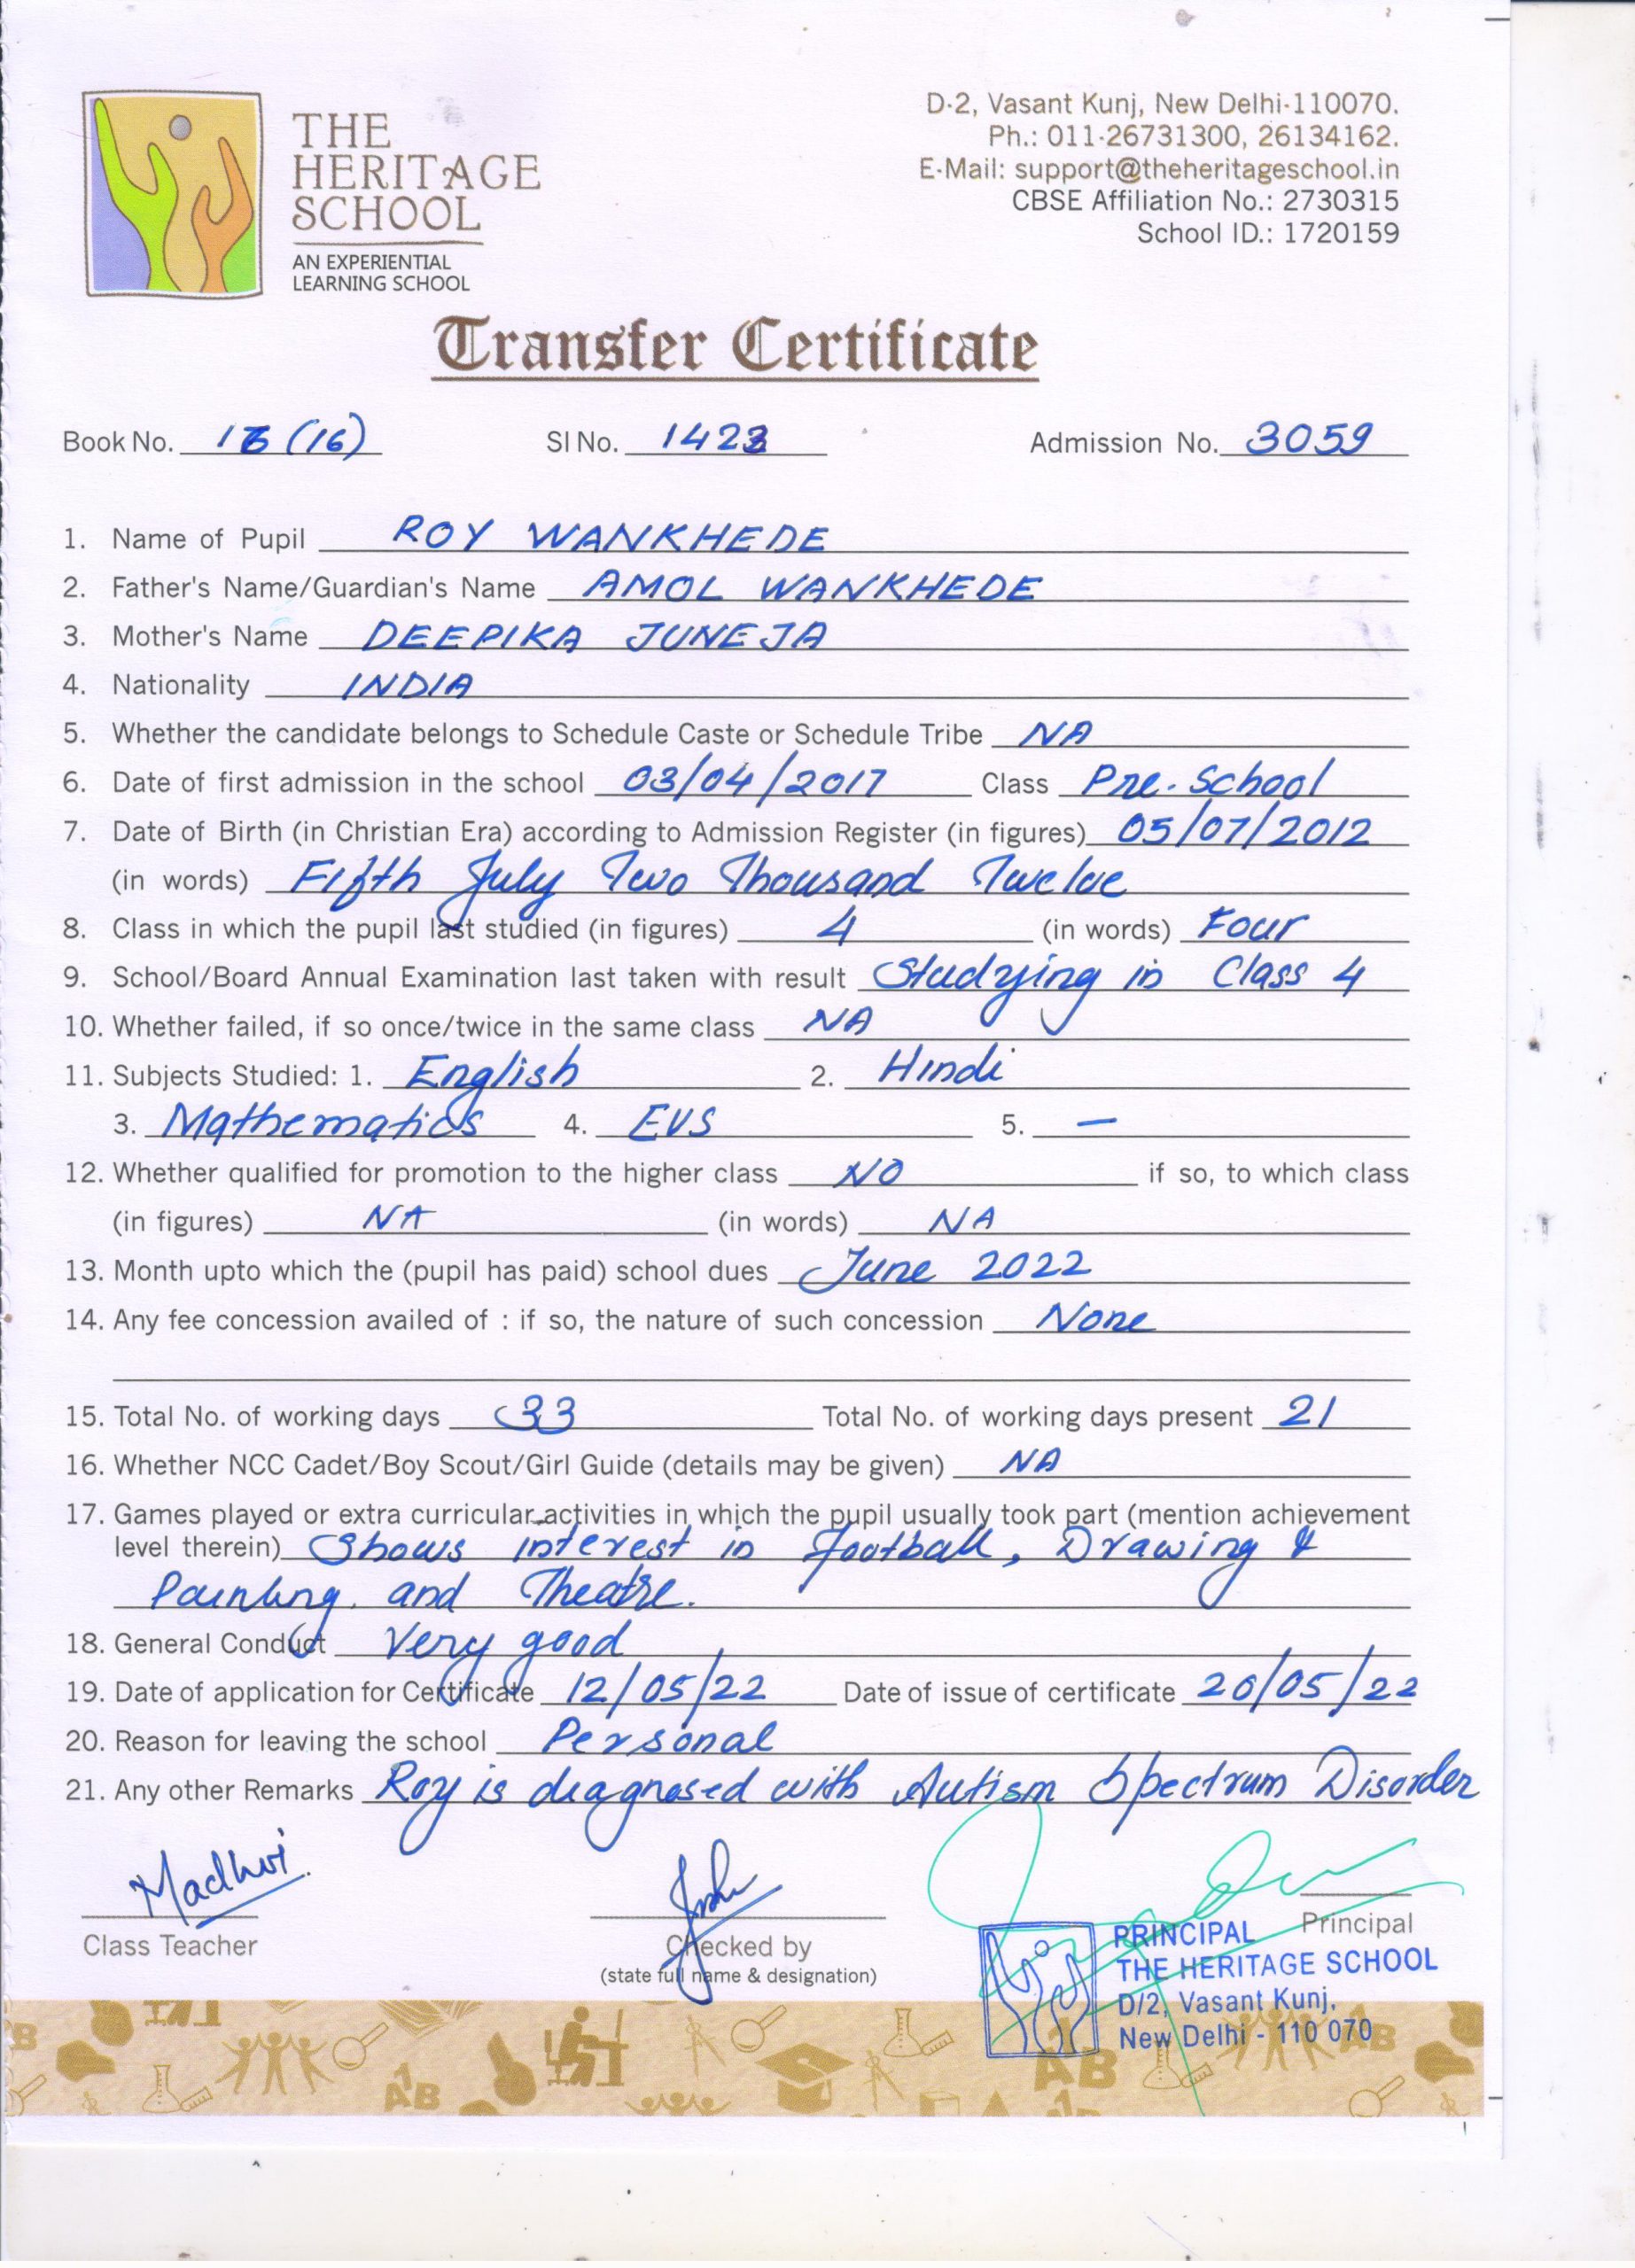 THE
HERITAGE
SCHOOL
AN EXPERIENTIAL
LEARNING SCHOOL
D-2, Vasant Kunj, New Delhi-110070.
Ph.: 011-26731300, 26134162.
E-Mail: support@theheritageschool.in
CBSE Affiliation No.: 2730315
School ID.: 1720159
Transfer Certificate
Book No. 16 (16) Sl No. 1423 Admission No. 3059
1. Name of Pupil ROY WANKHEDE
2. Father's Name/Guardian's Name AMOL WANKHEDE
3. Mother's Name DEEPIKA JUNEJA
4. Nationality INDIA
5. Whether the candidate belongs to Schedule Caste or Schedule Tribe NA
6. Date of first admission in the school 03/04/2017 Class Pre-School
7. Date of Birth (in Christian Era) according to Admission Register (in figures) 05/07/2012
(in words) Fifth July Two Thousand Twelve
8. Class in which the pupil last studied (in figures) 4 (in words) Four
9. School/Board Annual Examination last taken with result Studying in Class 4
10. Whether failed, if so once/twice in the same class NA
11. Subjects Studied: 1. English 2. Hindi
3. Mathematics 4. EVS 5. —
12. Whether qualified for promotion to the higher class NO if so, to which class
(in figures) NA (in words) NA
13. Month upto which the (pupil has paid) school dues June 2022
14. Any fee concession availed of : if so, the nature of such concession None
15. Total No. of working days 33 Total No. of working days present 21
16. Whether NCC Cadet/Boy Scout/Girl Guide (details may be given) NA
17. Games played or extra curricular activities in which the pupil usually took part (mention achievement
level therein) Shows interest in Football, Drawing &
Painting and Theatre.
18. General Conduct Very good
19. Date of application for Certificate 12/05/22 Date of issue of certificate 20/05/22
20. Reason for leaving the school Personal
21. Any other Remarks Roy is diagnosed with Autism Spectrum Disorder
Madhvi
Class Teacher
Checked by
(state full name & designation)
Principal
PRINCIPAL
THE HERITAGE SCHOOL
D/2, Vasant Kunj,
New Delhi - 110 070